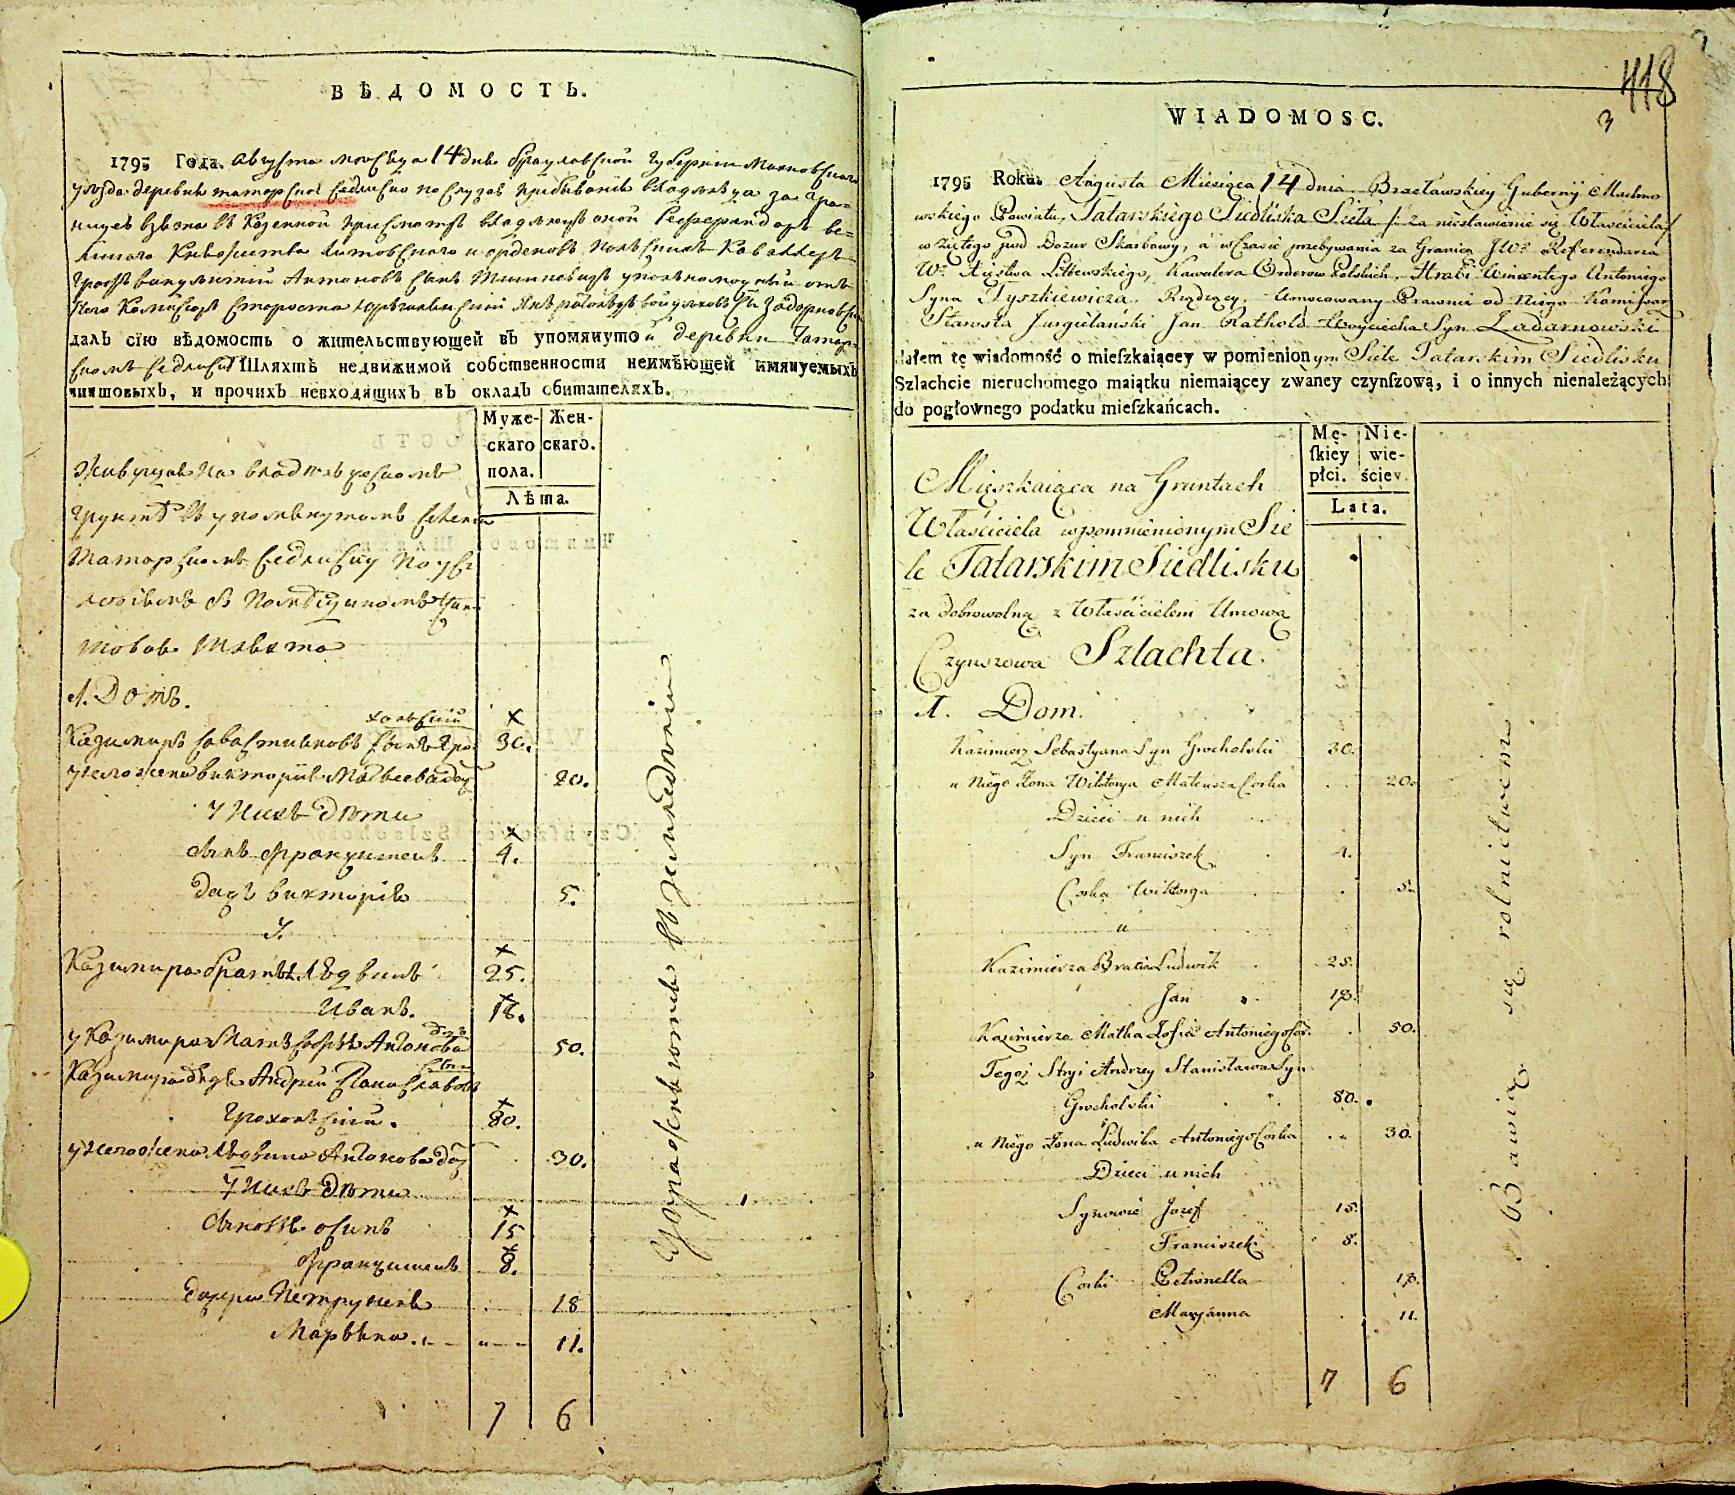 ВѢДОМОСТЬ.
1795 Года. Августа месеца 14 дня Брацлавской губернии Махновского
уезда деревни Татарской Седлиско по случаю пребывания владельца за гра-
ницею взята в казенной присмотр владеющей оной Референдарь ве-
ликого Княжества Литовского и орденов Польских Кавалер
Граф Викентий Антонов сын Тишкевич уполномоченный от
него Комисар Староста Юргелянский Ян Ратольд Войцехов сын Задарновский
далъ сїю вѣдомость о жительствующей въ упомянутой деревни Татар-
ском Седлиску Шляхтѣ недвижимой собственности неимѣющей имянуемыхъ
чиншовыхъ, и прочихъ невходящихъ въ окладъ обитателяхъ.
Муже-
скаго
пола.
Жен-
скаго.
Лѣта.
Живущая на владельческом
грунте в упомянутом селении
Татарском Седлиску по ус
ловиям с помещиком Чин-
шовая Шляхта
1. Домъ.
ховский
Казимир Савастианов сын Гро 30.
у него жена Виктория Матвеева доч 20.
У них дети
сын Францишек 4.
дочь Виктория 5.
У
Казимира братья Людвик 25.
Иван. 18.
доч
у Казимира мать София Антонова 50.
сын
Казимира дядя Андрей Станиславов
Грохольский. 80.
у него жена Людвика Антонова доч 30.
У них дети
сыновья Осип 15
Францишек 8.
дочери Петрунеля 18
Марьяна 11.
7 6
Упражняется в земледелии
418
3
WIADOMOSC.
1795 Roku. Augusta Miesiąca 14 dnia Bracławskiey Gubernij Machno
wskiego Powiatu, Tatarskiego Siedliska Sieła /: za niestawienie się Właściciela
wziętego pod Dozur Skarbowy, a w Czasie przebywania za Granicą JWo Referendarza
Wo Xięstwa Littewskiego, Kawalera Orderow Polskich, Hrabi Wincentego Antoniego
Syna Tyszkiewicza. Rządzący, Umocowany Prawnie od Niego Komisarz
Starosta Jurgielański Jan Rathold Woyciecha Syn Zadarnowski
dałem tę wiadomość o mieſzkaiącey w pomienionym Siele Tatarskim Siedlisku
Szlachcie nieruchomego maiątku niemaiącey zwaney czynſzową, i o innych nienależących
do pogłownego podatku mieſzkańcach.
Mę-
ſkiey
płci.
Nie-
wie-
ściey.
Lata.
Mięszkaiąca na Gruntach
Właściciela wpomnienionym Sie
le Tatarskim Siedlisku
za dobrowolną z Właścicielem Umową
Czynszowa Szlachta.
1. Dom.
Kazimierz Sebastyana Syn Grocholski 30.
u Niego Żona Wiktorya Mateusza Corka 20.
Dzieci u nich
Syn Franciszek 4.
Corka Wiktorya 5.
u
Kazimierza Bracia Ludwik 25.
Jan 18.
Kazimierza Matka Zofia Antoniego Cor: 50.
Tegoż Stryi Andrzey Stanisława Syn
Grocholski 80.
u Niego Żona Ludwika Antoniego Corka 30.
Dzieci u nich
Synowie Jozef 15.
Franciszek 8.
Corki Petronella 18.
Maryanna 11.
7 6
Bawią się rolnictwem